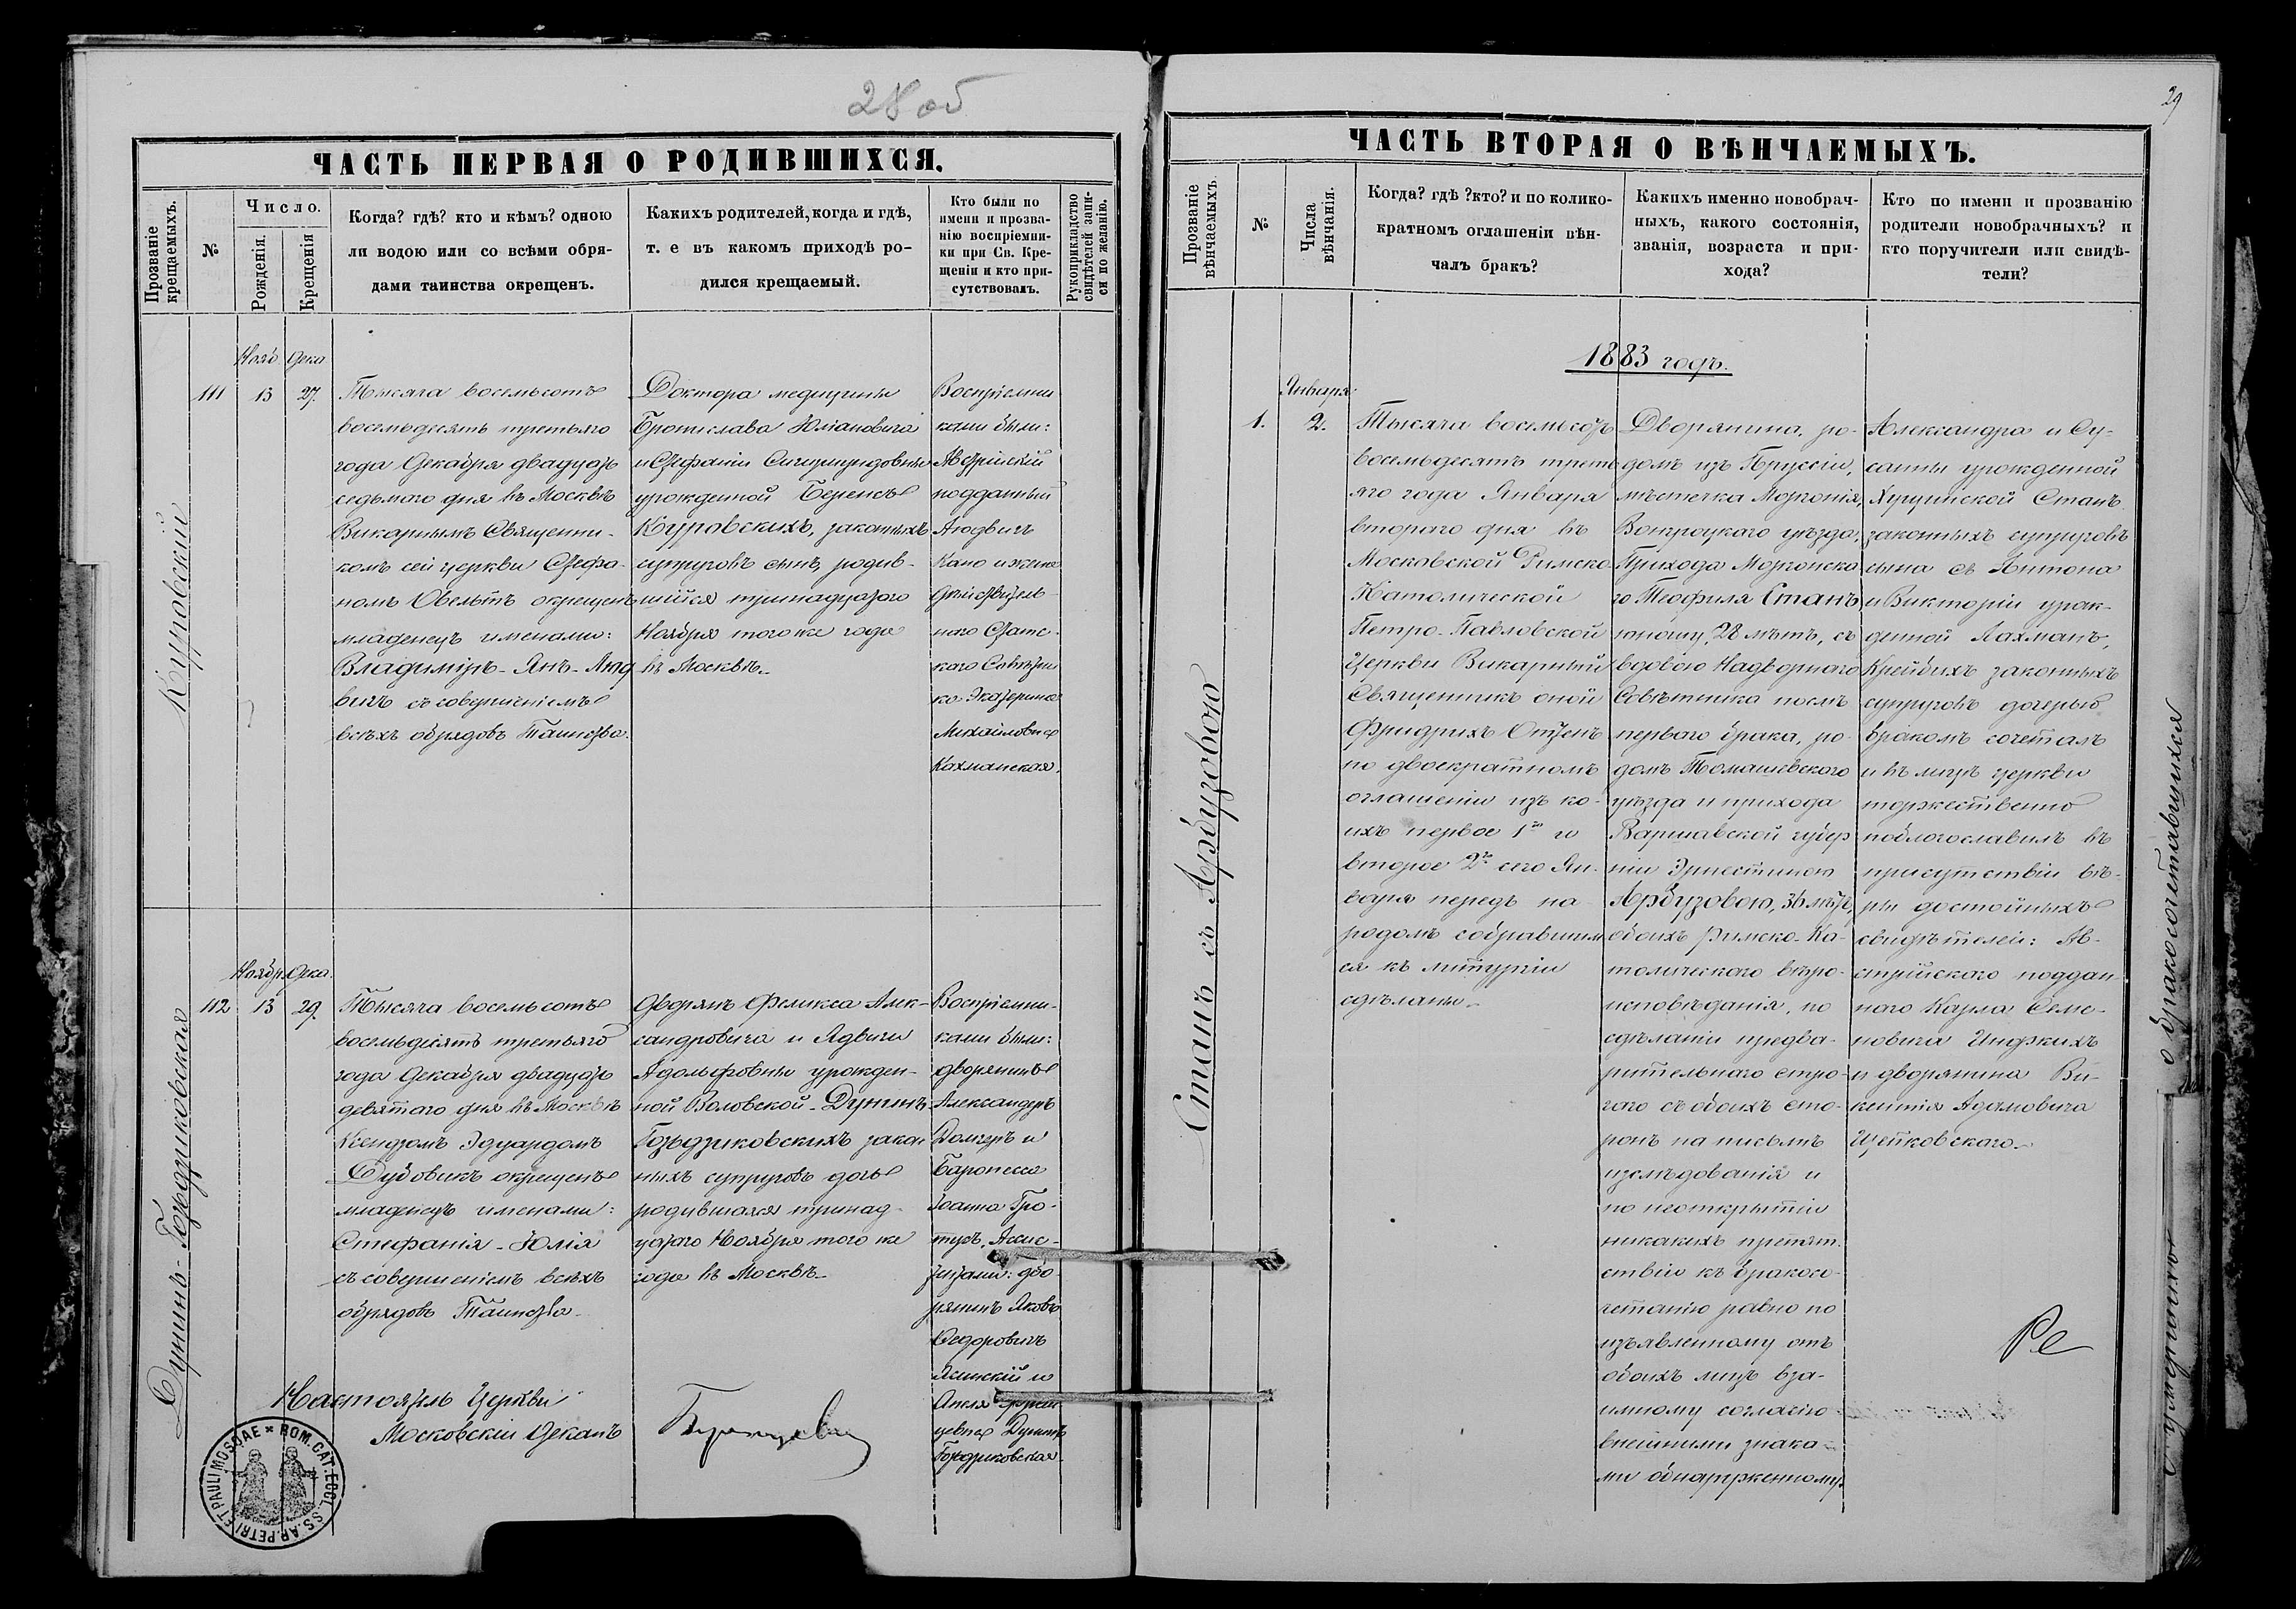 28 об
ЧАСТЬ ПЕРВАЯ О РОДИВШИХСЯ.
Прозваніе крещаемыхъ.
№
Число.
Рожденія.
Крещенія
Когда? гдѣ? кто и кѣмъ? одною
ли водою или со всѣми обря-
дами таинства окрещенъ.
Какихъ родителей, когда и гдѣ,
т. е въ какомъ приходѣ ро-
дился крещаемый.
Кто были по
имени и прозва-
нію воспріемни-
ки при Св. Кре-
щеніи и кто при-
сутствовалъ.
Рукоприкладство
свидѣтелей запи-
си по желанію.
Куровскій
Нояб Дека
111 13 27.
Тысяча восемьсотъ
восемьдесятъ третьяго
года Декабря двадцать
седьмого дня въ Москвѣ
Викарнымъ Священни-
комъ сей церкви Стефа-
номъ Овельтъ окрещенъ
младенецъ именами:
Владиміръ-Янъ-Люд
вигъ съ совершеніемъ
всѣхъ обрядовъ Таинства.
Доктора медицины
Бронислава Юліановича
и Стефаніи Сигизмундовны
урожденной Беренсъ
Куровскихъ, законныхъ
супруговъ сынъ, родив-
шійся тринадцатого
Ноября того же года
въ Москвѣ.
Воспріемни
ками были:
Австрійскій
подданный
Людвигъ
Кано и жена
Дѣйствитель-
наго Статс-
каго Совѣтни
ка Екатерина
Михайловна
Кахманская.
Дунинъ-Гоздзиковская
Ноябр. Дека.
112 13 29.
Тысяча восемьсотъ
восемьдесятъ третьяго
года Декабря двадцать
девятаго дня въ Москвѣ
Ксендзомъ Эдуардомъ
Дубовикъ окрещенъ
младенецъ именами:
Стефанія-Юлія
съ совершеніемъ всѣхъ
обрядовъ Таинства.
Дворянъ Феликса Алек-
сандровича и Ядвиги
Адольфовны урожден-
ной Воловской-Дунинъ-
Гоздзиковскихъ закон
ныхъ супруговъ дочь
родившаяся тринад-
цатаго Ноября того же
года въ Москвѣ.
Воспріемни-
ками были:
дворянинъ
Александръ
и
Баронесса
Іоанна Гро-
тусъ. Ассис-
тентами: дво-
рянинъ Яковъ
Федоровичъ
Ясинскій и
Анеля
Дунинъ
Гоздзиковская.
Настоятель Церкви
Московскій Деканъ
ROM. CAT. ECCL. SS. AP. PETRI ET PAULI MOSQAE
29
ЧАСТЬ ВТОРАЯ О ВѢНЧАЕМЫХЪ.
Прозваніе вѣнчаемыхъ.
№
Числа вѣнчанія.
Когда? гдѣ ?кто? и по колико-
кратномъ оглашеніи вѣн-
чалъ бракъ?
Какихъ именно новобрач-
ныхъ, какого состоянія,
званія, возраста и при-
хода?
Кто по имени и прозванію
родители новобрачныхъ? и
кто поручители или свидѣ-
тели?
1883 годъ.
Станъ съ Арбузовою
Января
1. 2.
Тысяча восемьсотъ
восемьдесятъ треть
яго года Января
второго дня въ
Московской Римско
Католической
Петро-Павловской
Церкви Викарный
Священникъ оной
Фридрихъ
по двоекратномъ
оглашеніи изъ ко-
ихъ первое 1го и
второе 2го сего Ян-
варя передъ на-
родомъ собравшим
ся къ литургіи
сдѣланы.
Дворянина, ро-
домъ изъ Пруссіи,
мѣстечка
уѣзда,
Прихода
го Теофиля Станъ,
юношу, 28 лѣтъ, съ
вдовою Надворнаго
Совѣтника послѣ
перваго брака, ро-
домъ Томашевского
уѣзда и прихода
Варшавской губер
ніи Эрнестиною
Арбузовою, 36 лѣтъ,
обоихъ Римско-Ка-
толическаго вѣро-
исповѣданія, по
сдѣланіи предва-
рительнаго стро-
гаго съ обоихъ сто-
ронъ на письмѣ
изслѣдованія и
по неоткрытіи
никакихъ препят-
ствій къ бракосо-
четанію равно по
изъявленному отъ
обоихъ лицъ вза-
имному согласію
внешними знака-
ми обнаруженному.
Александра и Су-
санны урожденной
Станъ
законныхъ супруговъ
сына съ Антона
и Викторіи урож-
денной Лахманъ,
Крейбихъ законныхъ
супруговъ дочерью
бракомъ сочеталъ
и въ лицѣ церкви
торжественно
поблагославилъ въ
присутствіи вѣ-
ры достойныхъ
свидѣтелей: Ав-
стрійского поддан-
ного Карла Семе-
новича
и дворянина Ви-
кентія Адамовича
о бракосочетавшихся